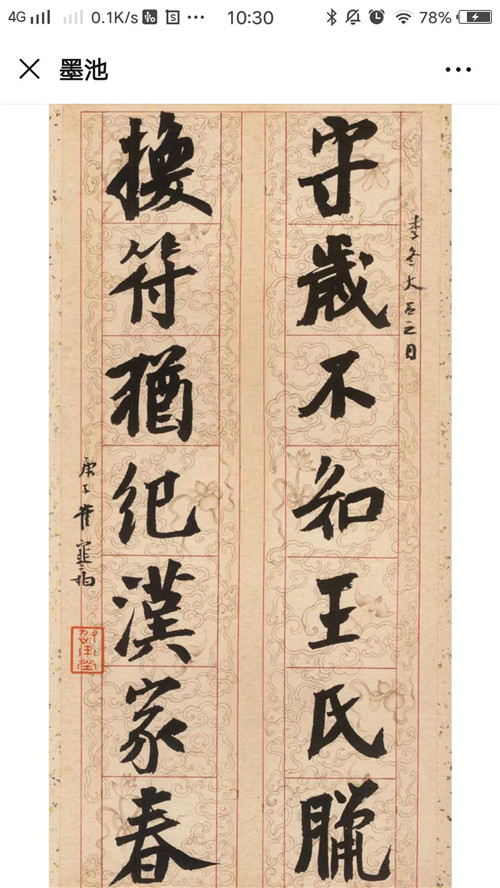 4G 0.1K/s 10:30 78%
墨池
季冬大之日
守歲不知王氏臘
換符猶紀漢家春
庚子崔寒柏